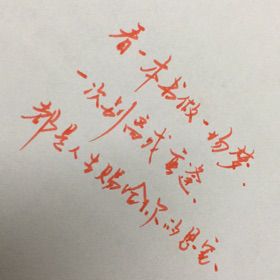 看一本书做一场梦、
一次别离或重逢、
都是人生赐给你的恩宠、